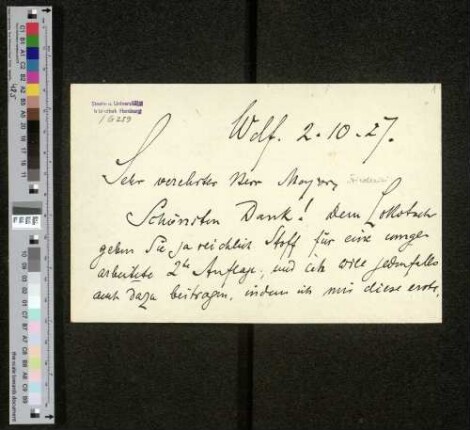 Staats u. Universitäts
bibliothek Hamburg
Wdf. 2-10-27.
Sehr verehrter Herr
Schönsten Dank! Dem Lokotsch
geben Sie ja reichlich Stoff für eine umge-
arbeitete 2te Auflage, und ich will jedenfalls
auch dazu beitragen, indem ich mir diese erste,